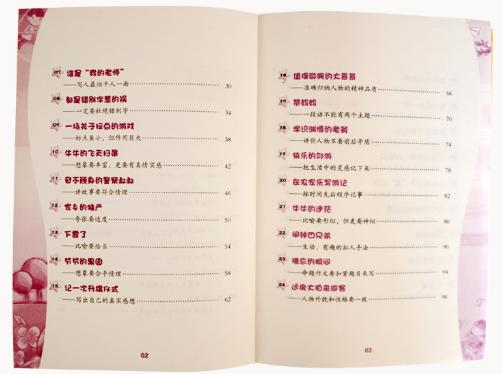 07 谁是“我的老师”
——写人最怕千人一面 30
08 都是错别字惹的祸
——一定要杜绝错别字 34
09 一场关于标点的游戏
——标点虽小，但作用巨大 38
10 牛牛的飞天扫帚
——想象要丰富，更要有真情实感 42
11 奋不顾身的警察叔叔
——讲故事要符合情理 46
12 家乡的特产
——夸张要适度 50
13 下雪了
——比喻要恰当 54
14 爷爷的果园
——想象要合乎情理 58
15 记一次升旗仪式
——写出自己的真实感想 62
02
16 值得敬佩的大哥哥
——准确归纳人物的精神品质 66
17 帮妈妈
——一段话不能有两个主题 70
18 学识渊博的老爸
——评价人物不要前后矛盾 74
19 快乐的郊游
——把生活中的灵感记下来 78
20 在农家乐写游记
——按时间先后顺序记事 82
21 牛牛的迷茫
——比喻要形似，但更要神似 86
22 甲钟四兄弟
——生动、有趣的拟人手法 90
23 难忘的瞬间
——命题作文要扣紧题目来写 94
24 远房大伯来做客
——人物外貌和性格要一致 98
03